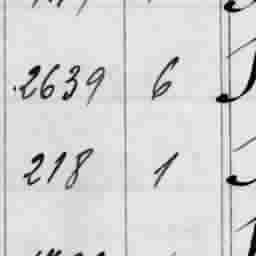 .2639 6
218 1